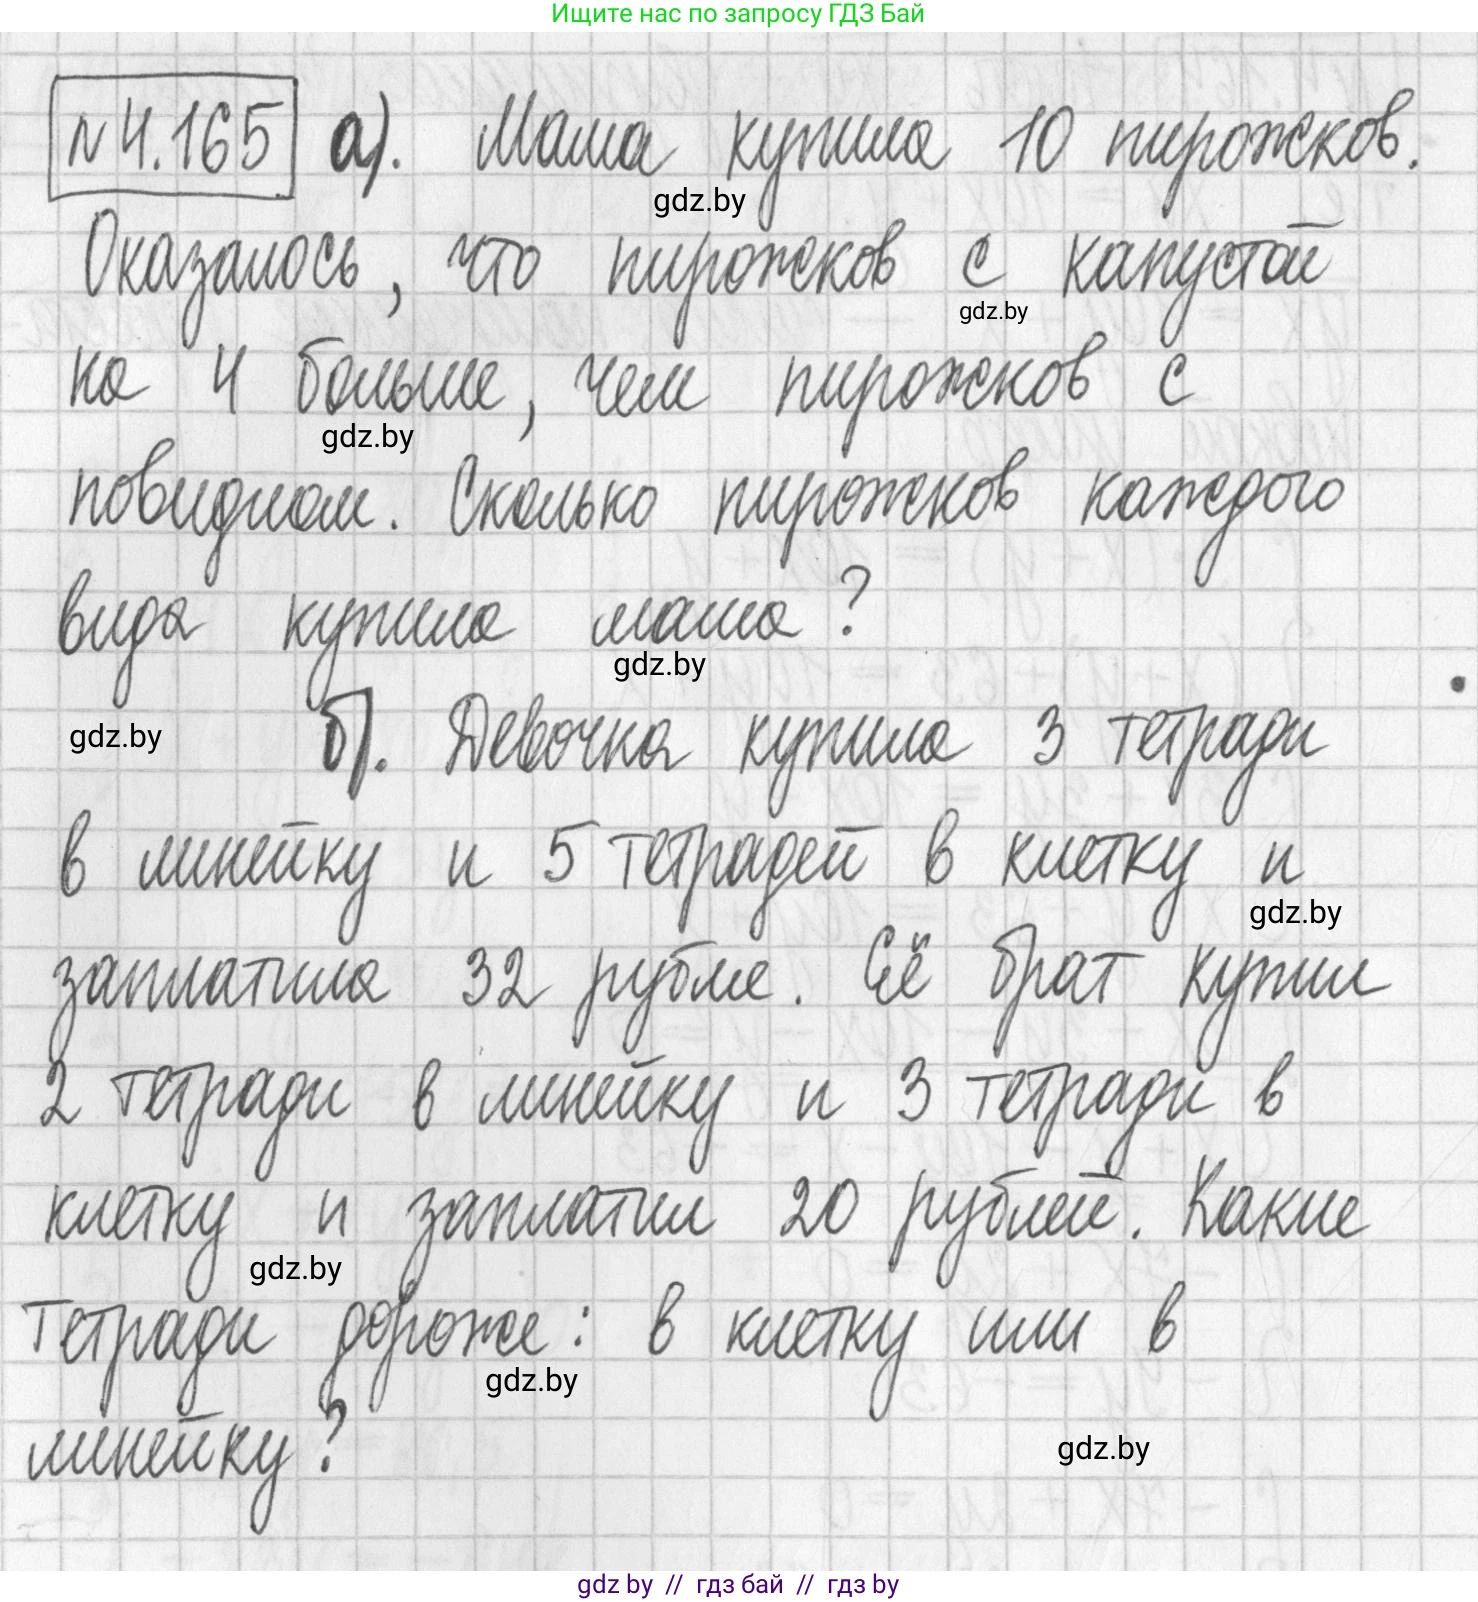 Ищите нас по запросу ГДЗ Бай
№4.165 а). Мама купила 10 пирожков.
gdz.by
Оказалось, что пирожков с капустой
gdz.by
на 4 больше, чем пирожков с
gdz.by
повидлом. Сколько пирожков каждого
вида купила мама?
gdz.by
gdz.by
б). Девочка купила 3 тетради
в линейку и 5 тетрадей в клетку и
gdz.by
заплатила 32 рубля. Её брат купил
2 тетради в линейку и 3 тетради в
клетку и заплатил 20 рублей. Какие
gdz.by
тетради дороже: в клетку или в
gdz.by
линейку?
gdz.by
gdz by // гдз бай // гдз by